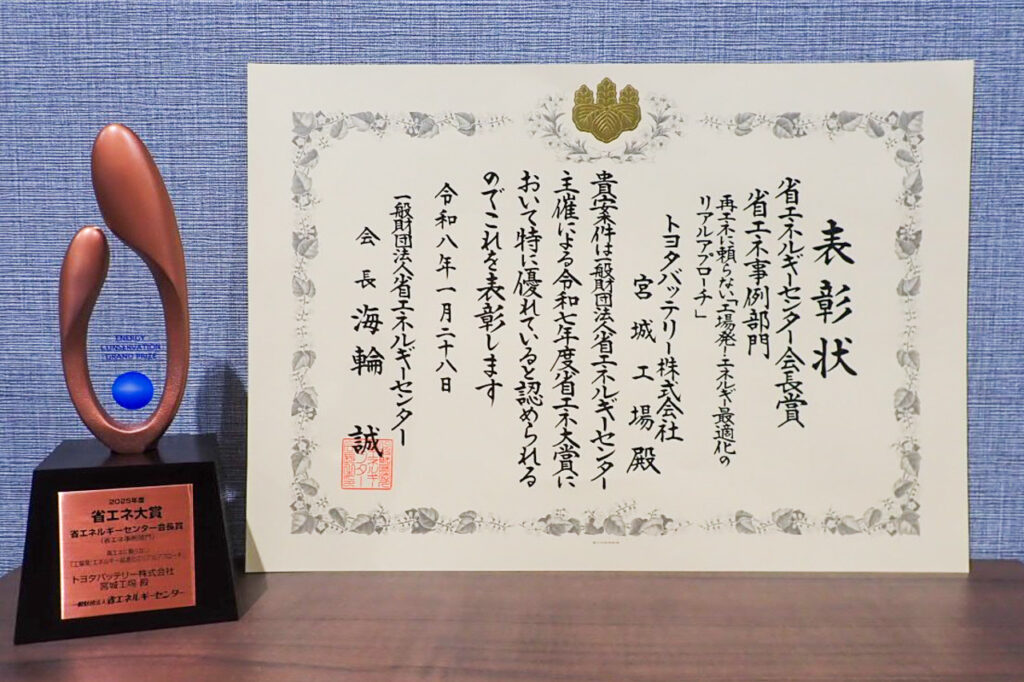 表彰状
省エネルギーセンター会長賞
省エネ事例部門
再エネに頼らない「工場発!エネルギー最適化の
リアルアプローチ」
トヨタバッテリー株式会社
宮城工場殿
貴案件は一般財団法人省エネルギーセンター
主催による令和七年度省エネ大賞に
おいて特に優れていると認められる
のでこれを表彰します
令和八年一月二十八日
一般財団法人省エネルギーセンター
会長 海輪 誠
ENERGY
CONSERVATION
GRAND PRIZE
2025年度
省エネ大賞
省エネルギーセンター会長賞
(省エネ事例部門)
再エネに頼らない
「工場発!エネルギー最適化のリアルアプローチ」
トヨタバッテリー株式会社
宮城工場 殿
一般財団法人 省エネルギーセンター